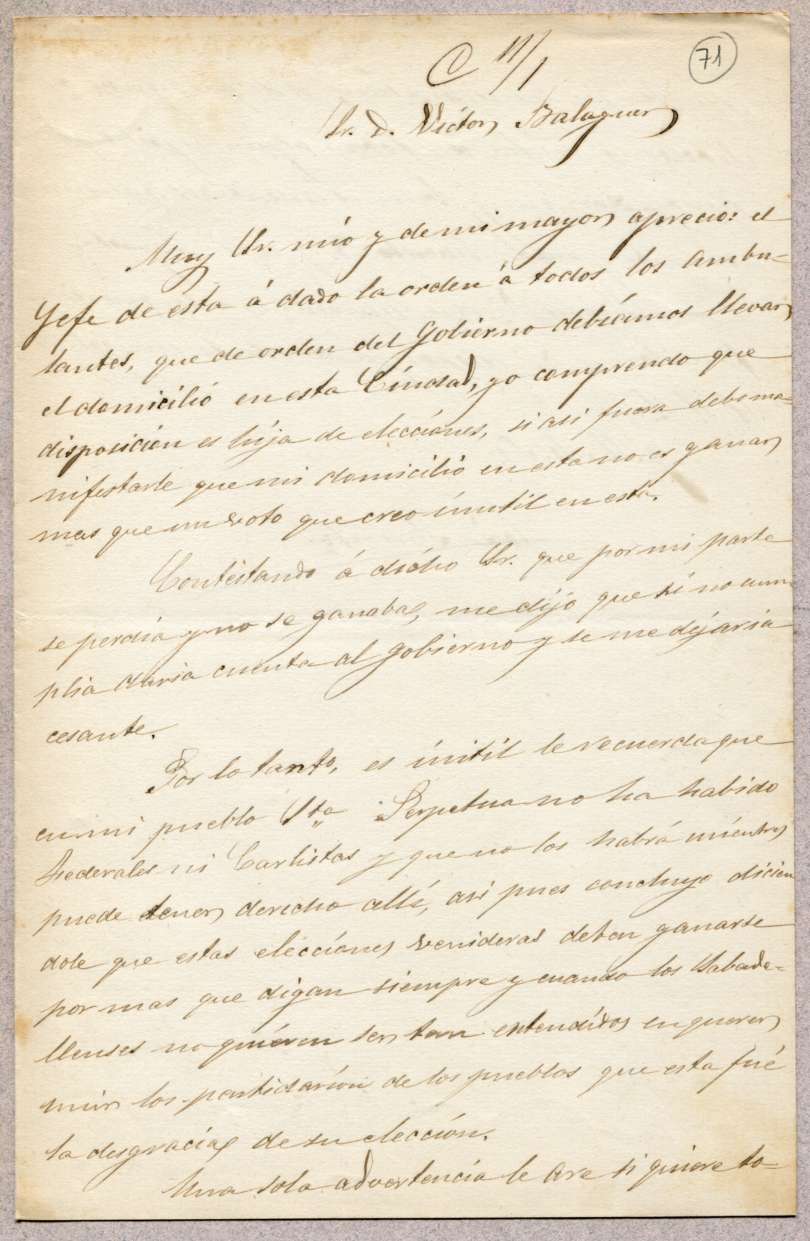 C 11/1
71
Sr. D. Victor Balaguer
Muy Sr. mio y de mi mayor aprecio: el
Yefe de esta á dado la orden á todos los ambu-
lantes, que de orden del Gobierno debiamos llevar
el domicilió en esta Ciudad, yo comprendo que
disposición es hija de elecciones, si asi fuera debo ma-
nifestarle que mi domicilió en esta no es ganar
mas que un voto que creo inutil en esta.
Contestando á dicho Sr. que por mi parte
se perdia y no se ganaba, me dijo que si no cum
plia daria cuenta al gobierno y se me dejaria
cesante.
Por lo tanto, es initil le recuerda que
en mi pueblo Sta Perpetua no ha habido
Federales ni Carlistas y que no los habrá mientras
puede tener derecho allí, asi pues concluyo dicien
dole que estas elecciones venideras deben ganarse
por mas que digan siempre y cuando los Sabade-
llenses no quieren ser tan entendidos en querer
unir los partidarion de los pueblos que esta fué
la desgracia de su elección.
Una sola advertencia le are si quiere to-